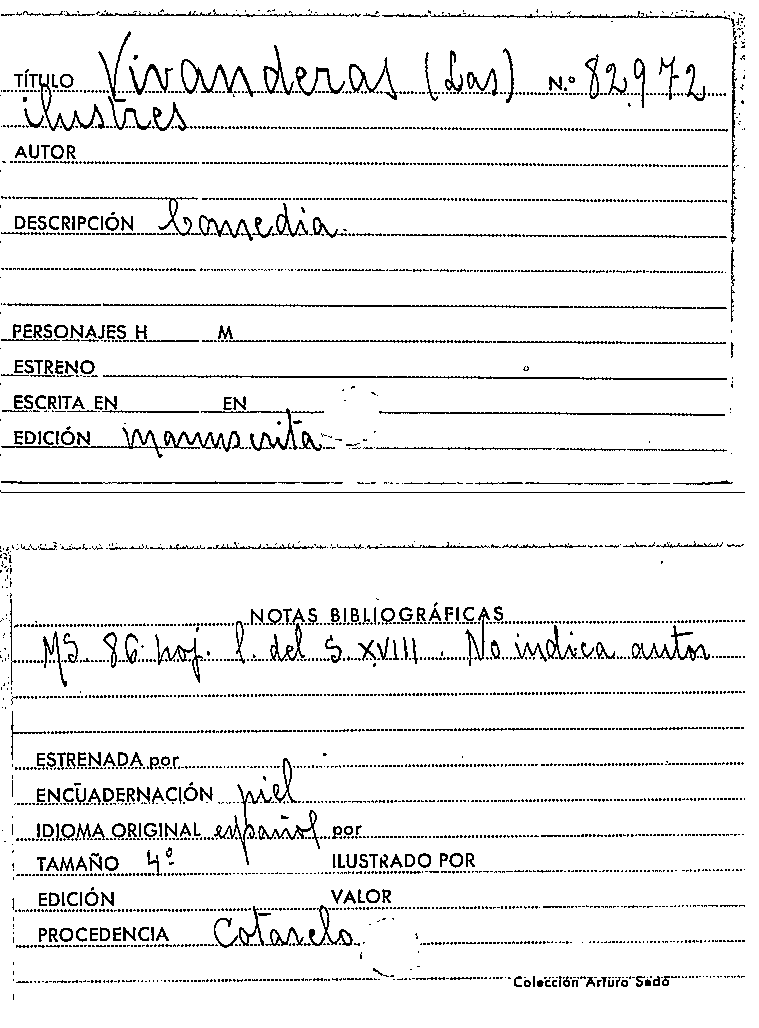 TÍTULO Vivanderas (Las) N.º 82.972
ilustres
AUTOR
DESCRIPCIÓN Comedia
PERSONAJES H M
ESTRENO
ESCRITA EN EN
EDICIÓN manuscrita
NOTAS BIBLIOGRÁFICAS
MS. 86 hoj. l. del S. XVIII. No indica autor
ESTRENADA por
ENCUADERNACIÓN piel
IDIOMA ORIGINAL español por
TAMAÑO 4º ILUSTRADO POR
EDICIÓN VALOR
PROCEDENCIA Cotarelo
Colección Arturo Sedó